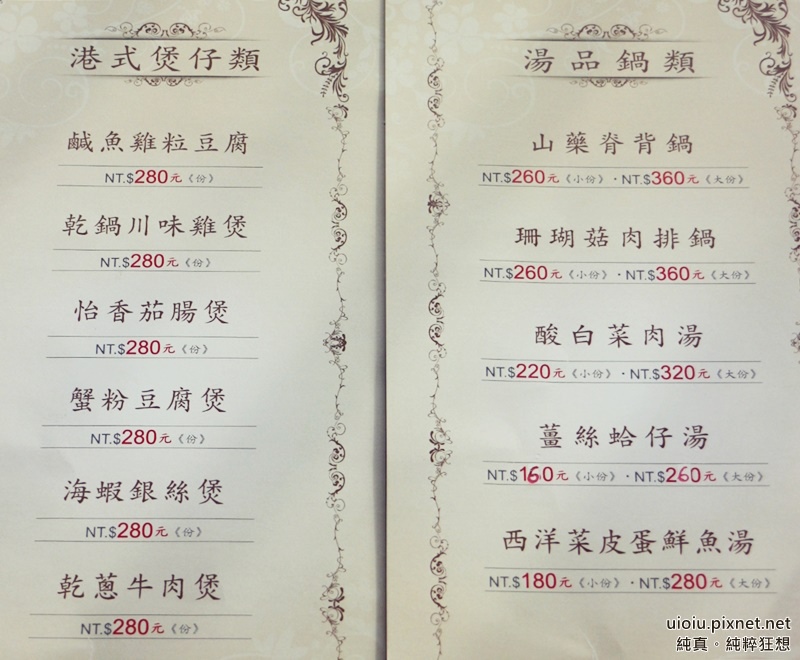 港式煲仔類
鹹魚雞粒豆腐
NT.$280元《份》
乾鍋川味雞煲
NT.$280元《份》
怡香茄腸煲
NT.$280元《份》
蟹粉豆腐煲
NT.$280元《份》
海蝦銀絲煲
NT.$280元《份》
乾蔥牛肉煲
NT.$280元《份》
湯品鍋類
山藥脊背鍋
NT.$260元《小份》·NT.$360元《大份》
珊瑚菇肉排鍋
NT.$260元《小份》·NT.$360元《大份》
酸白菜肉湯
NT.$220元《小份》·NT.$320元《大份》
薑絲蛤仔湯
NT.$160元《小份》·NT.$260元《大份》
西洋菜皮蛋鮮魚湯
NT.$180元《小份》·NT.$280元《大份》
uioiu.pixnet.net
純真。純粹狂想